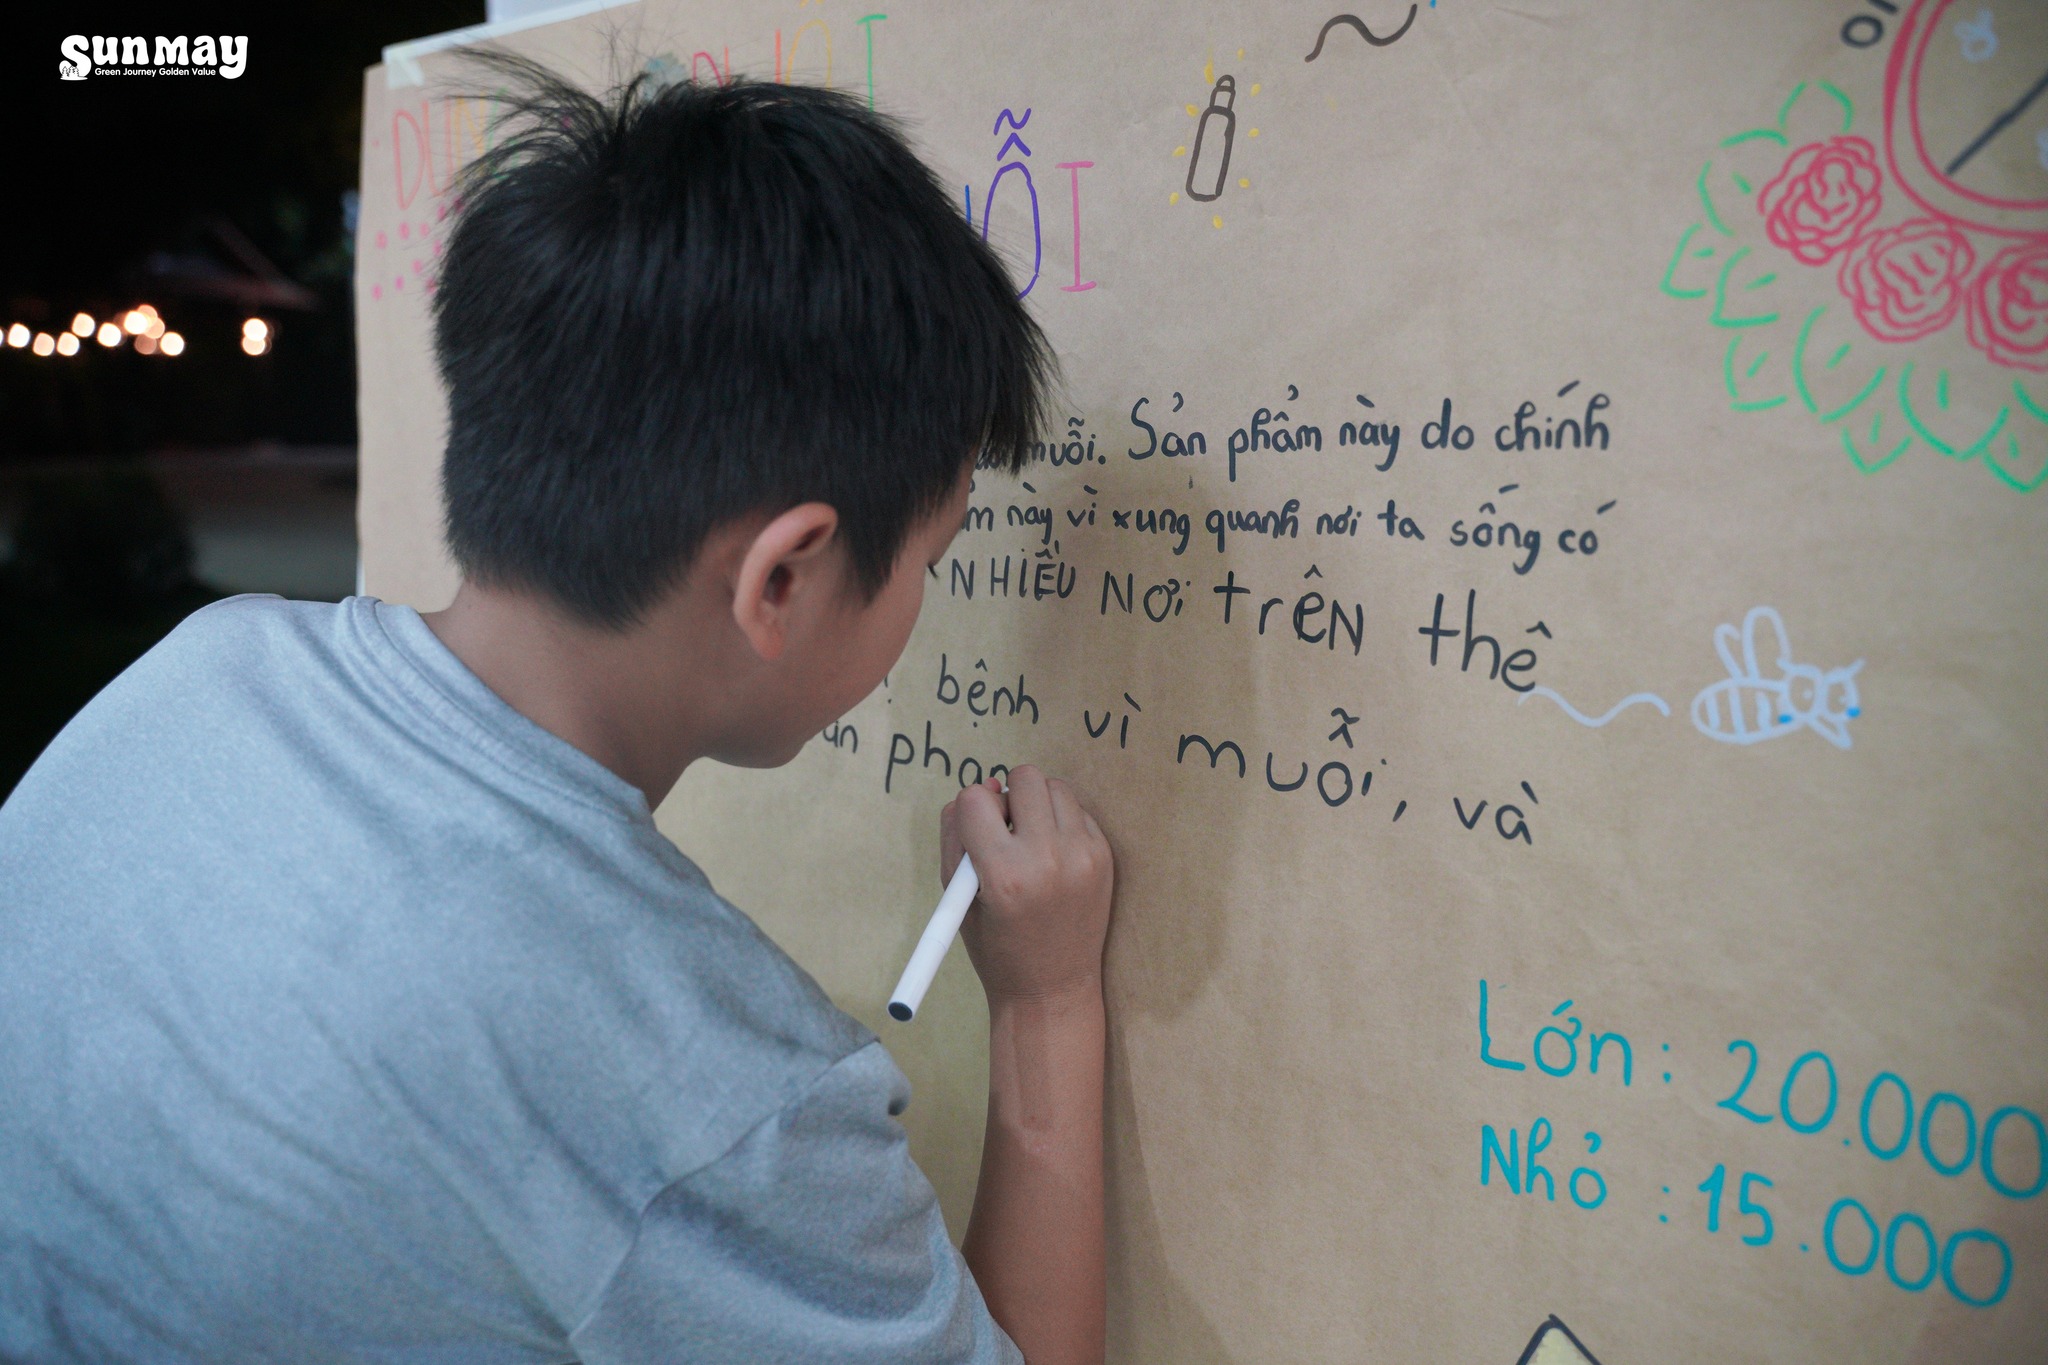 sunmay
Green Journey Golden Value
DUN
ĐUỔI
UỖI
10
muỗi. Sản phẩm này do chính
này vì xung quanh nơi ta sống có
NHIỀU NƠI trêN thê
bệnh vì muỗi, và
phạm
Lớn: 20.000
Nhỏ: 15.000